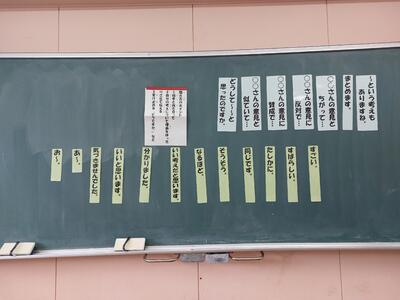 〜という考えも
ありますね。
まとめます。
〇〇さんの意見と
ちがって…
〇〇さんの意見に
反対で…
〇〇さんの意見に
賛成で…
〇〇さんの意見と
似ていて…
どうして〜と
思ったのですか。
すごい。
すばらしい。
たしかに。
同じです。
そうそう。
なるほど。
いい考えだと思います。
分かりました。
いいと思います。
気づきませんでした。
あ〜。
お〜。